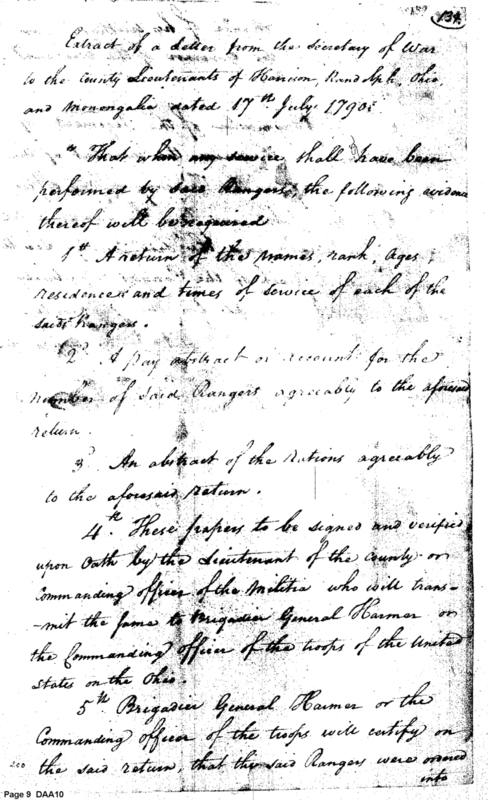 134
Extract of a Letter from the Secretary of War
to the County Lieutenants of Harrison, Randolph, Ohio,
and Monongalia dated 17th July 1790:
" That when any service shall have been
performed by said Rangers, the following evidence
thereof will be required
1st A return of the names, rank, Ages,
residence and times of service of each of the
said Rangers.
2d A pay abstract or account for the
number of said Rangers agreeably to the aforesaid
return.
3d An abstract of the Rations agreeably
to the aforesaid return.
4th These papers to be signed and verified
upon Oath by the Lieutenant of the County or
Commanding officer of the Militia who will trans-
-mit the same to Brigadier General Harmer or
the Commanding officer of the troops of the United
States on the Ohio.
5th Brigadier General Harmer or the
Commanding officer of the troops will certify on
the said return, that the said Rangers were ordered
into
Page 9 DAA10